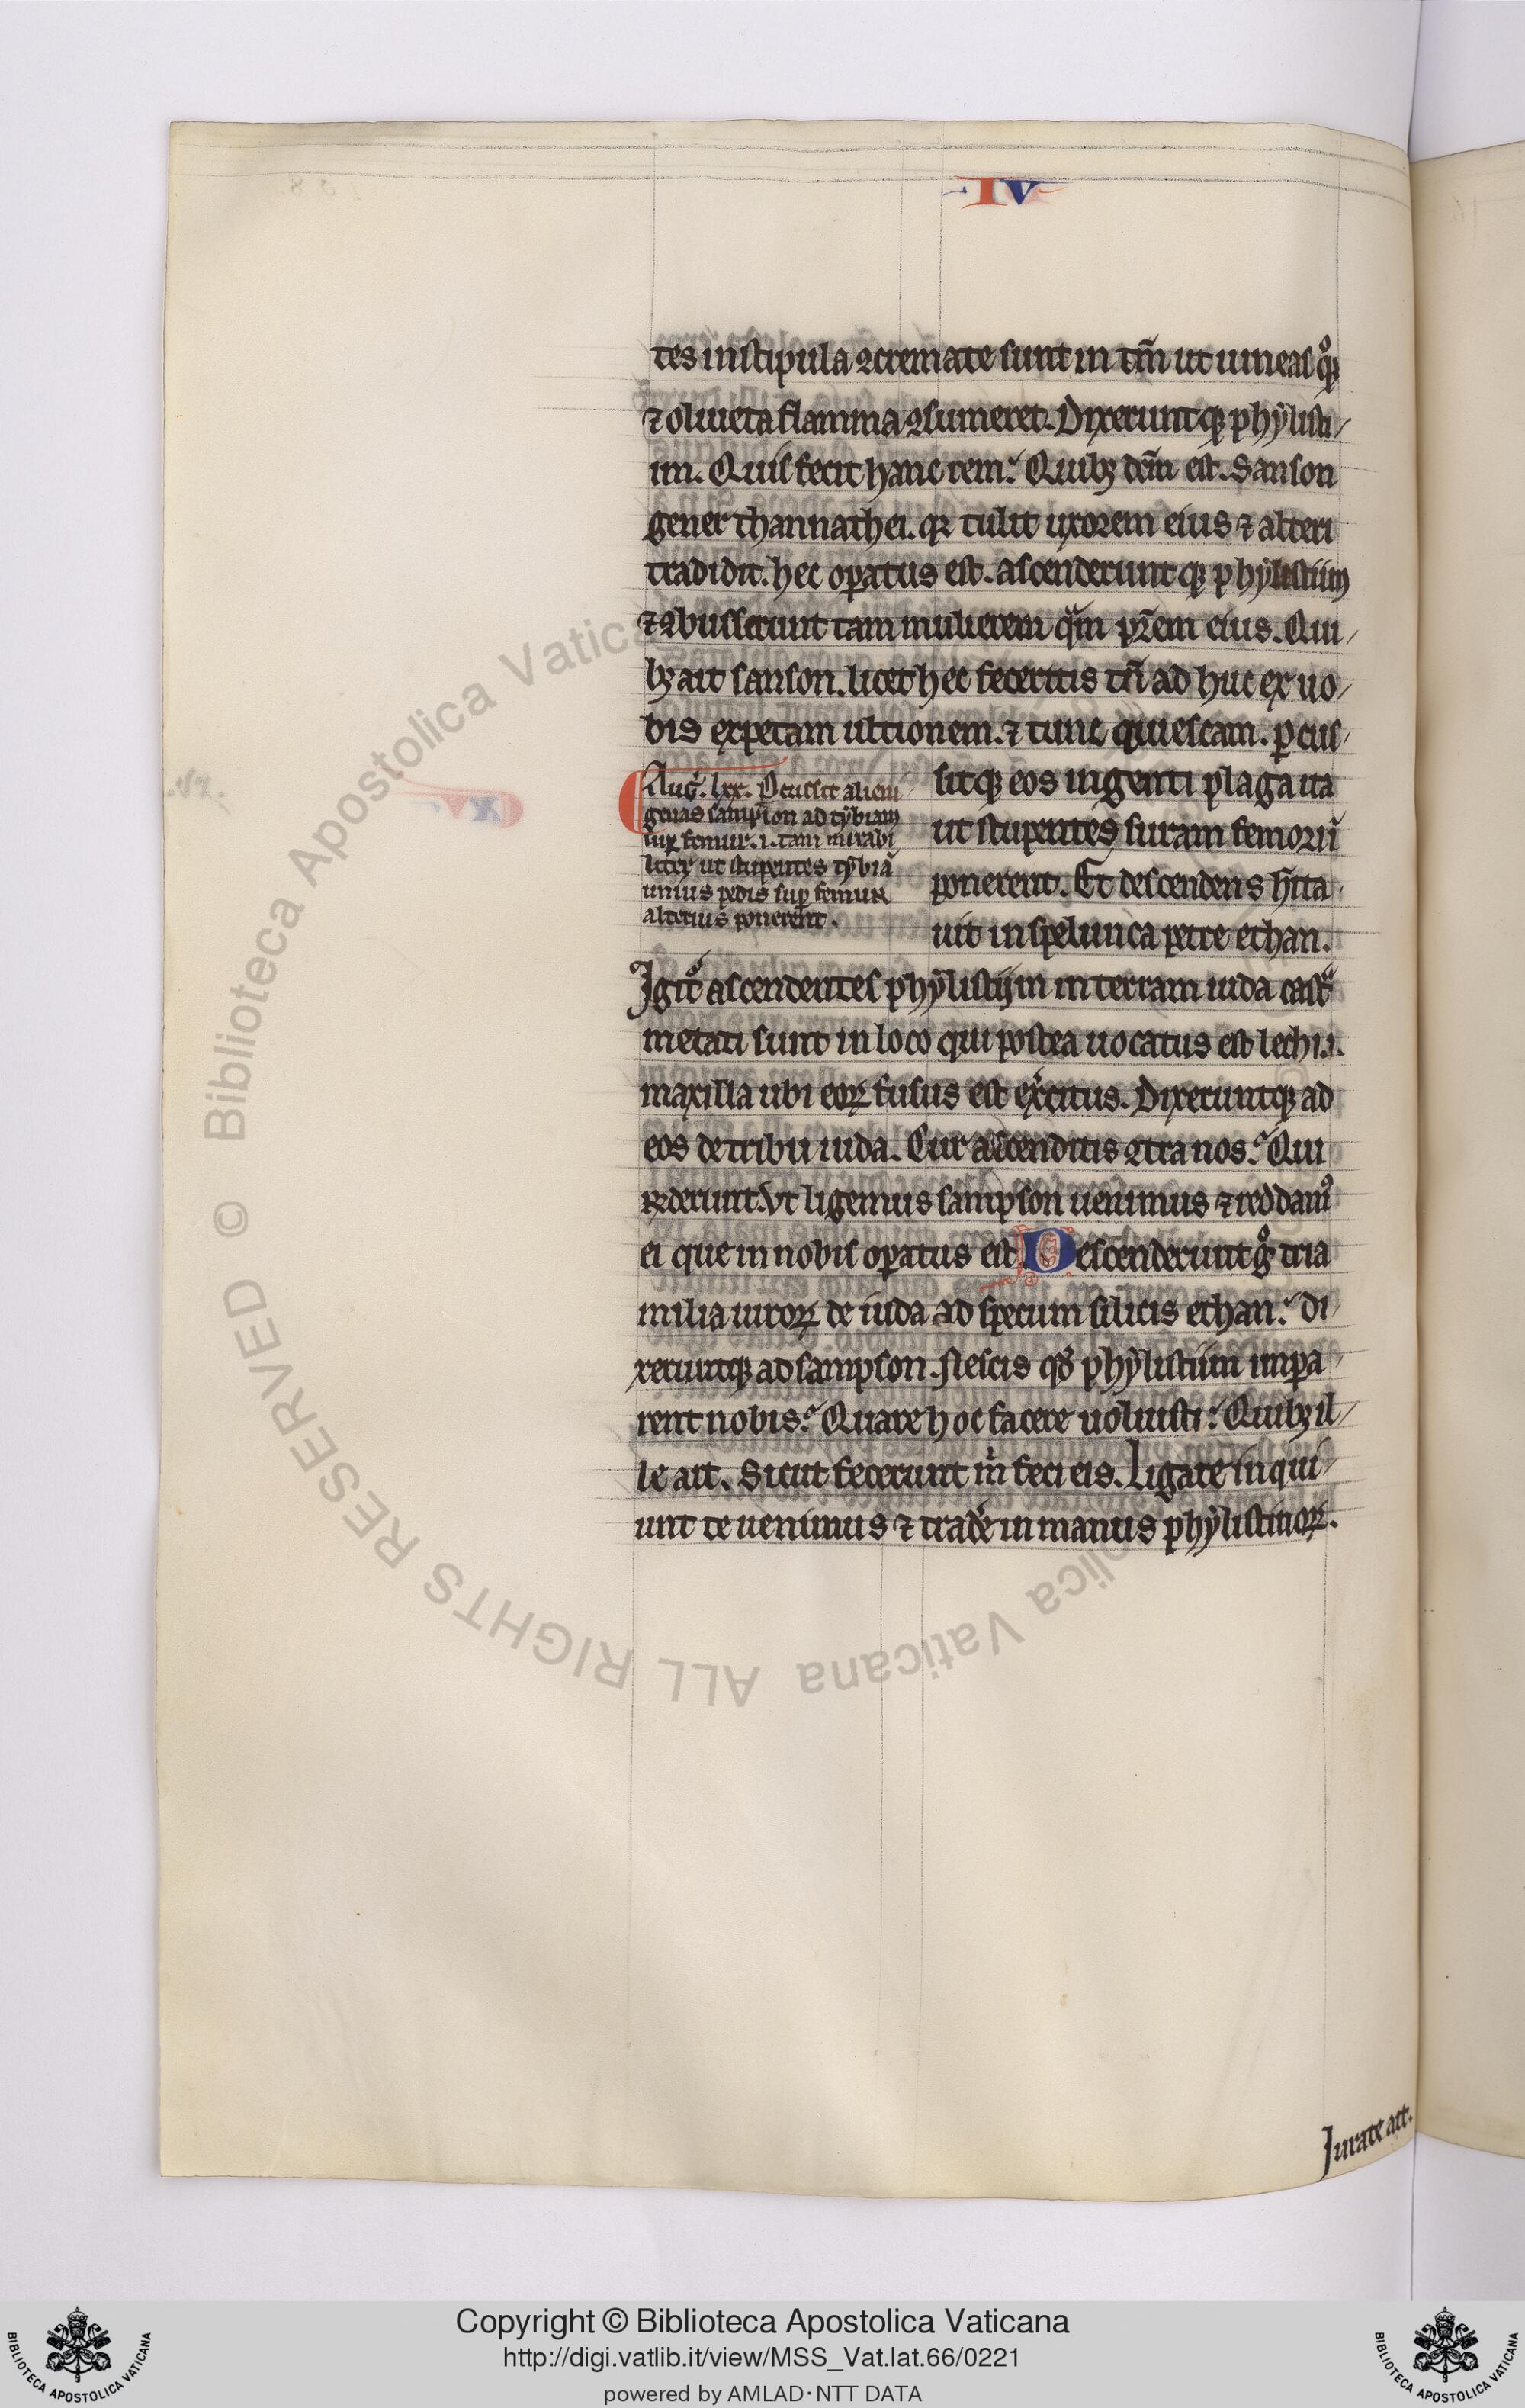 IV
tes in stipula ꝯcremate sunt in tm̄ ut uineas qͦꝫ
⁊ oliueta flamma ꝯsumeret. Dixeruntqꝫ phẏlisti/
im. Quis fecit hanc rem? Quibꝫ dcm̄ est. Sanson
gener thannathei. qꝛ tulit uxorem eius ⁊ alteri
tradidit. hec oꝑatus est. ascenderuntqꝫ phẏlistiim
⁊ ꝯbusserunt tam mulierem qᵃm pr̄em eius. Qui/
bꝫ ait sanson. licet hec feceritis tn̄ ad huc ex uo/
bis expetam ultionem. ⁊ tunc quiescam. ꝑcus/
sitqꝫ eos ingenti plaga ita
ut stupentes suram femori
ponerent. Et descendens hita/
uit in spelunca petre ethan.
Aug. lxx. ꝑcussit alieni/
genas sampson ad tẏbiam
suꝑ femur. i. tam mirabi
liter ut stupentes tẏbiā
unius pedis suꝑ femur
alterius ponerent.
Igit᷑ ascendentes phẏlistijm in terram iuda castᵃ
metati sunt in loco qui postea uocatus est lechi .i.
maxilla ubi eoꝝ fusus est ex̾citus. Dixeruntqꝫ ad
eos de tribu iuda. Cur ascenditis ꝯtra nos? Qui
rn̄derunt. Vt ligemus sampson uenimus ⁊ reddamꝰ
ei que in nobis oꝑatus est. Descenderunt gͦ tria
milia uiroꝝ de iuda ad specum silicis ethan? di/
xeruntqꝫ ad sampson. Nescis qđ phẏlistiim imꝑa/
rent nobis? Quare hoc facere uoluisti? Quibꝫ il/
le ait. Sicut fecerunt m̍ feci eis. Ligare inqui/
unt te uenimus ⁊ trade᷑ in manus phẏlistinoꝝ.
Iurate ait.
© Biblioteca Apostolica Vaticana ALL RIGHTS RESERVED
Copyright © Biblioteca Apostolica Vaticana
http://digi.vatlib.it/view/MSS_Vat.lat.66/0221
powered by AMLAD·NTT DATA
BIBLIOTECA APOSTOLICA VATICANA
BIBLIOTECA APOSTOLICA VATICANA